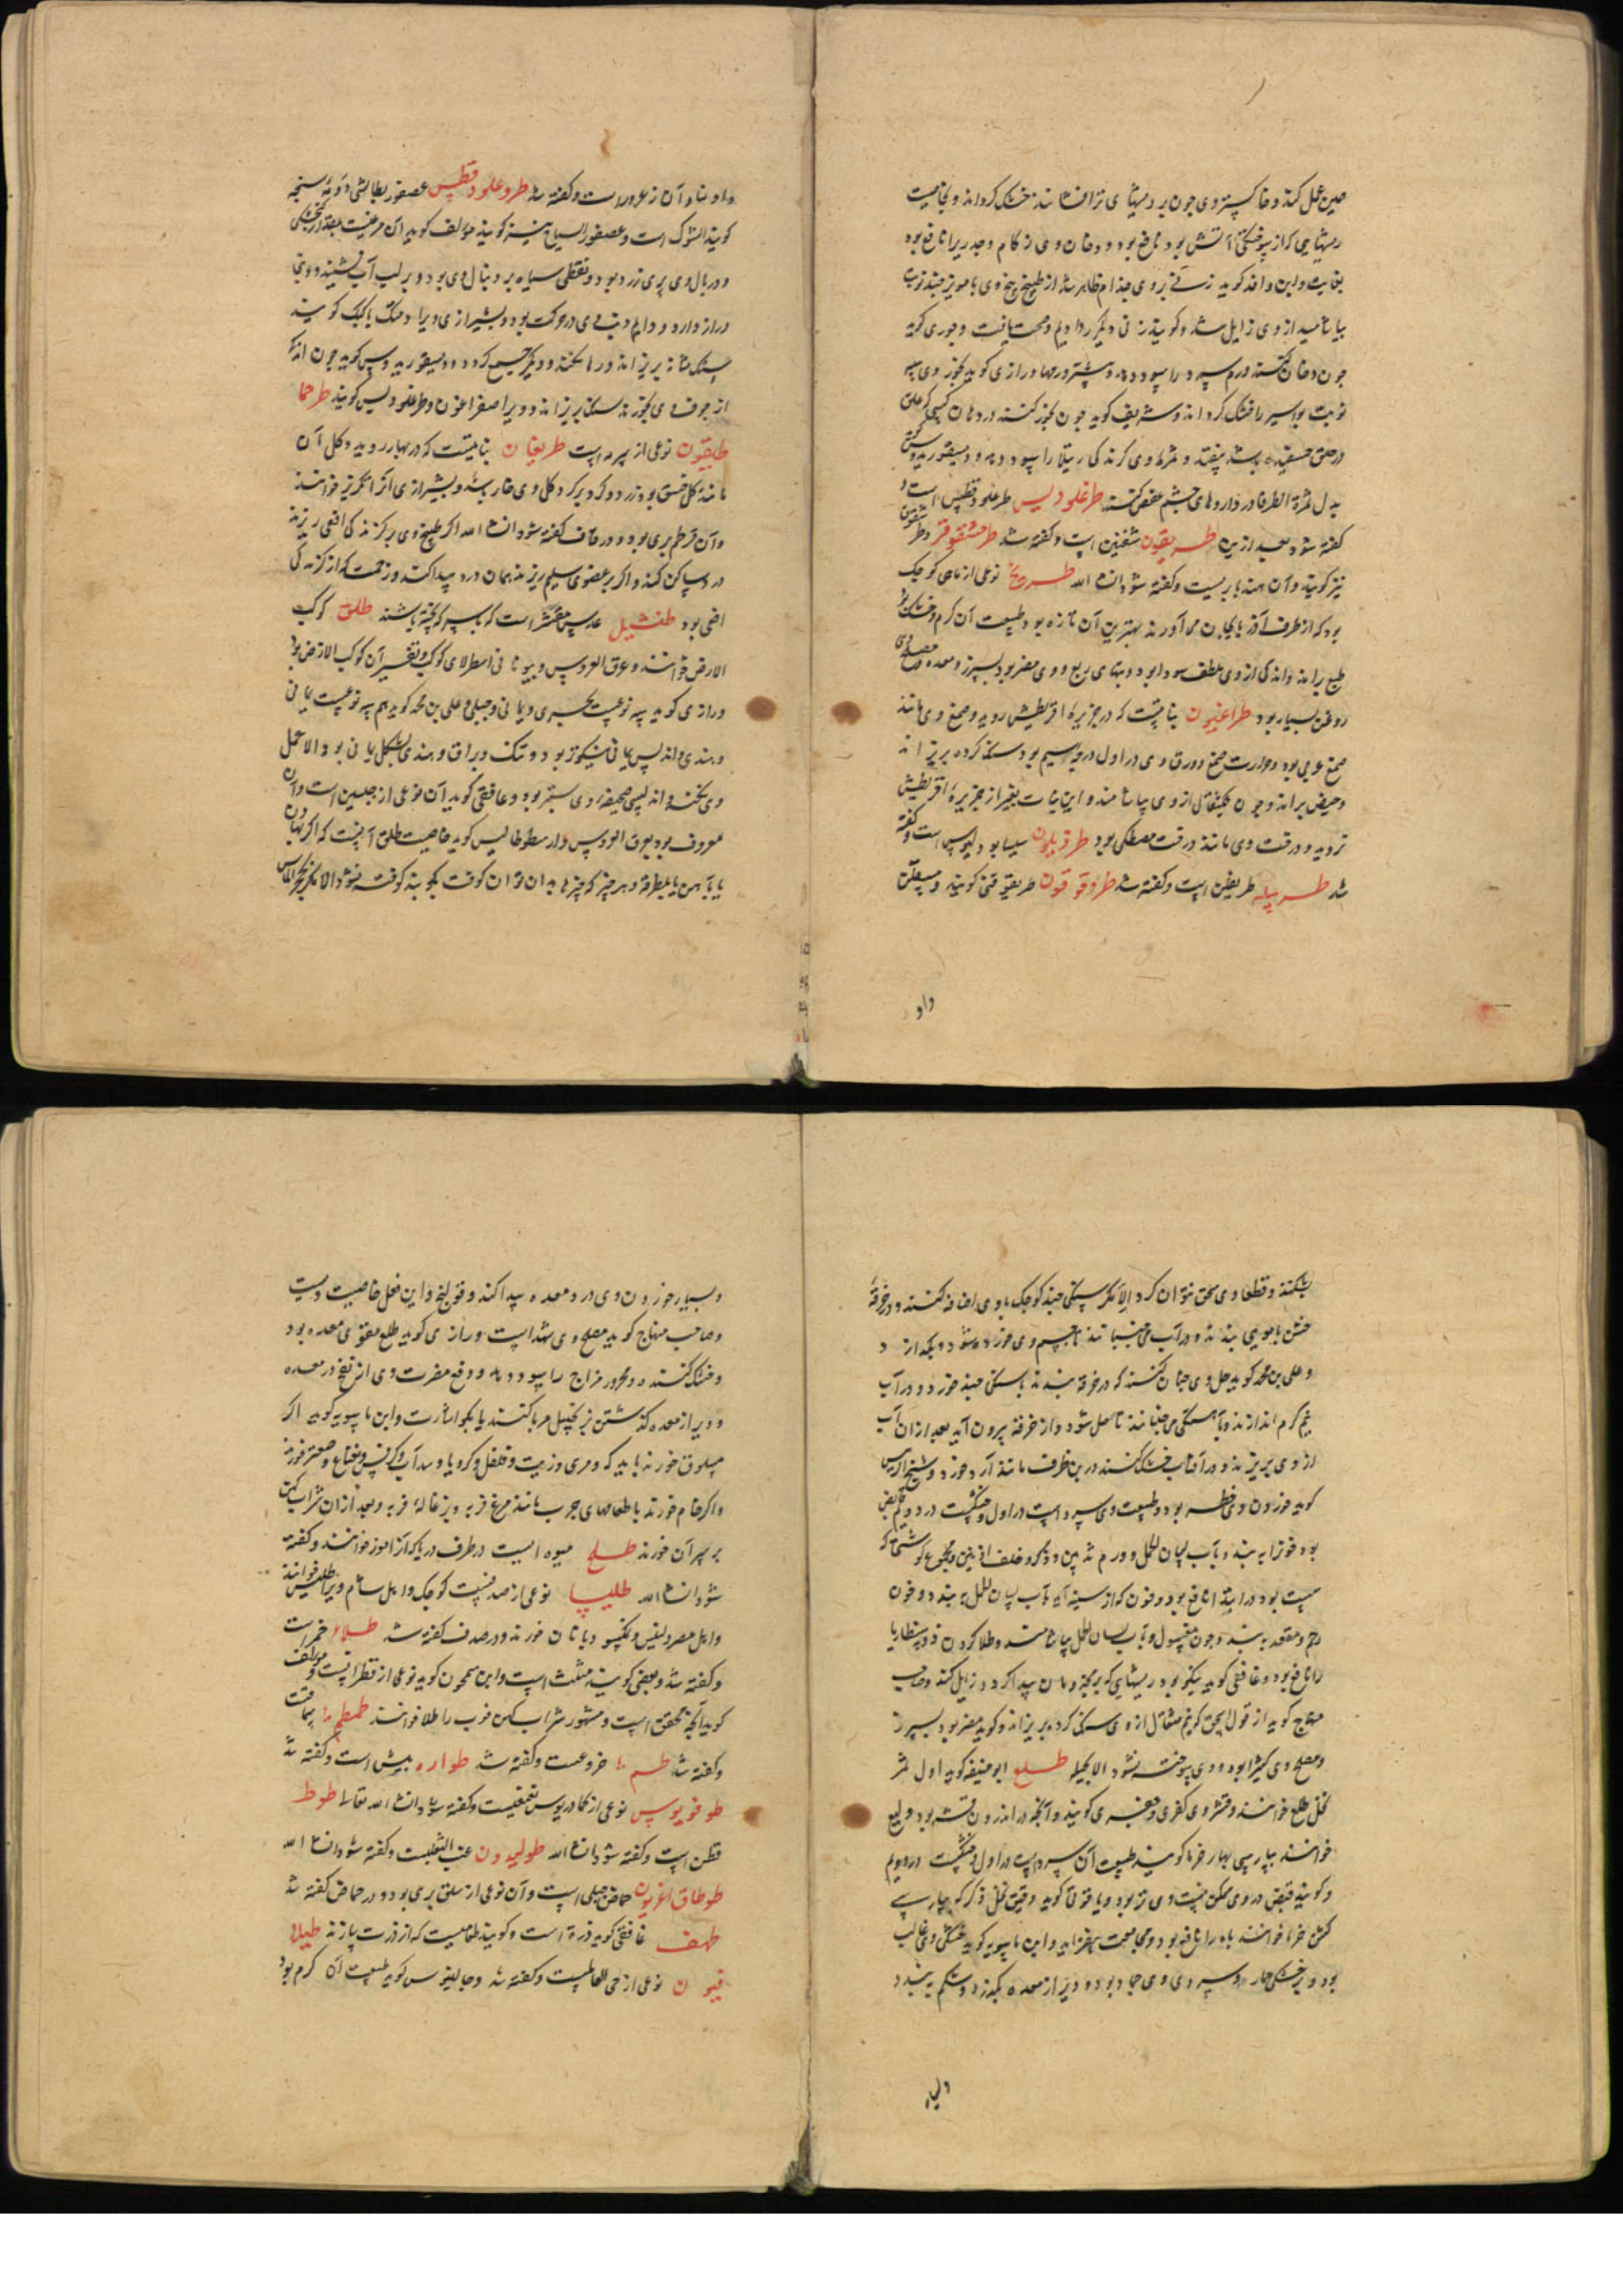 صین عمل کند و خاکستر وی چون بر ریشهای تر افشانند خشک گرداند و بخاصیت
ریشهایی که از سوختگی آتش بود نافع بود و دخان وی زکام و جدری را نافع بود
بغایت و ابن وافد گوید زنی بر وی جذام ظاهر شد از طبیخ بیخ وی با مویز چند نوبت
بیاشامید از وی زایل شد و گویند زنی دیگر را دادیم و صحت یافت و جوری گوید
چون دخان کنند ورم سپرز را سود دهد و رازی گوید بخور وی سه
نوبت بواسیر را خشک گرداند و شریف گوید چون بخور کنند در دهان کسی که علق
در حلق چسفیده باشد بیفتد و ثمرهٔ وی گزندگی رتیلا را سود دهد و دیسقوریدوس گوید
بدل ثمرة الطرفا در داروهای چشم عفص کنند طرغلودیس طرغلودقطیس است و
گفته شود بعد ازین طریقون شفنین است و گفته شد طرمشقوقز و طرشقوق
نیز گویند و آن هندبا بریست و گفته شود انشاء الله طریخ نوعی از ماهی کوچک
بود که از طرف آذربایجان می آورند بهترین آن تازه بود و طبیعت آن گرم و خشک بود
طبع براند و اندکی از وی ملطف سودا بود و تبهای ربع و وی مضر بود بسپرز و معده و مصلح وی
روغن بسیار بود طراغیون نباتیست که در جزیرهٔ اقریطش روید و صمغ وی مانند
صمغ عربی بود و حرارت صمغ و ورق وی در اول درجه سیم بود سنگ گرده بریزاند
و حیض براند و چون یک مثقال از وی بیاشامند و این نبات بغیر از جزیرهٔ اقریطش
نروید و درخت وی مانند درخت مصطکی بود طرفیلون سیسابود لیوس است و گفته
شد طریفله طریفلن است و گفته شد طروقوقون طریقوقن گویند و مسیقلن
داو
داو بناو آن زعرور است و گفته شد طروغلودقطیس عصفور بطالشی دویهٔ سنجیه
گویند الشوک است و عصفور السیاج نیز گویند مؤلف گوید آن مرغیست بمقدار گنجشکی
و در بال وی پری زرد بود و نقطی سیاه بر دنبال وی بود و بر لب آب نشیند و دنبی
دراز دارد و دایم دنب وی در حرکت بود و بشیرازی ویرا دمتک با کبک گویند
سنگ مثانه بریزاند و رها نکند و دیگر جمع گردد و دیسقوریدوس گوید چون اندک
از جوف وی بخورند سنگ بریزاند و ویرا صفراغون و طرغلودیس گویند طرحما
طیقون نوعی از سپره است طریفان نباتیست که در بهار روید و گل آن
مانند گل خسق بود زرد و گرد بر گرد گل وی خار باشد و بشیرازی آنرا انگریز خوانند
و آن قرطم بری بود و در قاف گفته شود انشاء الله اگر طبیخ وی بر گزندگی افعی ریزند
درد ساکن کند و اگر بر عضوی سلیم ریزند همان درد پیدا کند و زحمت که از گزندگی
افعی بود طفشیل عدس مقشر است که با سرکه پخته باشند طلق کوکب
الارض خوانند و عرق العروس و بیونانی اسطرلای کوکب و تفسیر آن کوکب الارض بود
و رازی گوید سه نوعست بحری و یمانی و جبلی و علی بن محمد گوید هم سه نوعست یمانی
و هندی و اندلسی یمانی نیکوتر بود و تنک و براق و هندی بشکل یمانی بود الا عمل
وی نکند و اندلسی صحیفهٔ وی ستبر بود و غافقی گوید آن نوعی از جبسین است و آن
معروف بود بعرق العروس و ارسطوطالیس گوید خاصیت طلق آنست که اگر بهاون
یا بآهن یا بمطرقه و هر چیز که چیزها بدان توان کوفت بکوبند کوفته نشود الا مگر بحجر الماس
بشکنند و قطعا وی سحق نتوان کرد الا مگر سنگی چند کوچک با وی اضافه کنند و در خرقهٔ
خشن یا مویی بندند و در آب می جنبانند تا جسم وی خرده شود و بگدازد
و علی بن محمد گوید حل وی چنان کنند که در خرقه بندند با سنگی چند خرد و در آب
نیم گرم اندازند و بآهستگی می جنبانند تا حل شود و از خرقه بیرون آید بعد از آن آب
از وی بریزند و در آفتاب خشک کنند در بن ظرف مانند آرد بود و شیخ الرئیس
گوید خوردن وی خطر بود و طبیعت وی سرد است در اول و خشکست در دویم قابض
بود خون را ببندد بآب لسان الحمل و ورم ثدیین و ذکر و خلف اذنین و مجموع گوشتی که
سست بود در ابتدا نافع بود و خون که از سینه آید بآب لسان الحمل ببندد و خون
رحم و مقعد ببندد چون مغسول و بآب لسان الحمل بیاشامند و طلا کردن ذوسنطاریا
را نافع بود و غافقی گوید نیکو بود ریشهایی که بر مخزه و دهان پیدا گردد زایل کند و صاحب
منهاج گوید از قول اسحق که نیم مثقال از وی سنگ گرده بریزاند و گوید مضر بود بسپرز
و مصلح وی کثیرا بود و وی سوخته نشود الا بحیله طلع ابو حنیفه گوید اول ثمر
نخل طلع خوانند و قشر وی کفری و جف می گویند و آنچه در اندرون قشر بود ولیع
خوانند بپارسی بهار خرما گویند طبیعت آن سرد است در اول و خشکست در دویم
و گویند قبض در وی ممکن نیست وی تر بود و یا فزونی گوید دقیق نخل ذکر که بپارسی
کشن خرما خوانند باه را نافع بود و مجامعت بیفزاید و ابن ماسویه گوید خشکی وی غالب
بود بر خشکی جمار و سردی وی جماد بود و دیر از معده بگذرد و شکم ببندد
وبسیار
و بسیار خوردن وی درد معده پیدا کند و قولنج و این فعل خاصیت ویست
و صاحب منهاج گوید مصلح وی شهد است و رازی گوید طلع مقوی معده بود
و خشک کننده و محرور مزاج را سود دهد و دفع مضرت وی از نفخ در معده
و دیر از معده گذشتن بزنجبیل مربا کنند یا بکوارشت و ابن ماسویه گوید اگر
مسلوق خورند باید که و مری و زیت و فلفل و کرویا و سداب و کرفس و نعناع و صعتر خورند
و اگر خام خورند با طعامهای چرب مانند مرغ فربه و بزغالهٔ فربه و بعد از آن شراب کهن
بر سر آن خورند طلح میوه ایست در طرف دریا که آنرا موز خوانند و گفته
شود انشاء الله طلیسا نوعی از صدفست کوچک و اهل شام ویرا طلینس خوانند
و اهل مصر دلینس و تکنیسو و با نان خورند و در صدف گفته شد طلاء خمر است
و گفته شد و بعضی گویند مثلث است و ابن سمحون گوید نوعی از قطرانست و مؤلف
گوید آنچه محقق است و مشهور شراب کهن خوب را طلا خوانند طمطم سماقست
و گفته شد طم خروعست و گفته شد طواره بیش است و گفته شد
طوفریوس نوعی از کمادریوس حقیقیست و گفته شود انشاء الله تعالی طوط
قطن است و گفته شود انشاء الله طولیدون عنب الثعلبست و گفته شود انشاء الله
طوطاق اغریون حماض جبلی است و آن نوعی از سلق بری بود و در حماض گفته شد
طهف غافقی گوید ذرة است و گویند طعامیست که از ذرت سازند طیلا
فیون نوعی از حی العالمست و گفته شد و جالینوس گوید طبیعت آن گرم بود